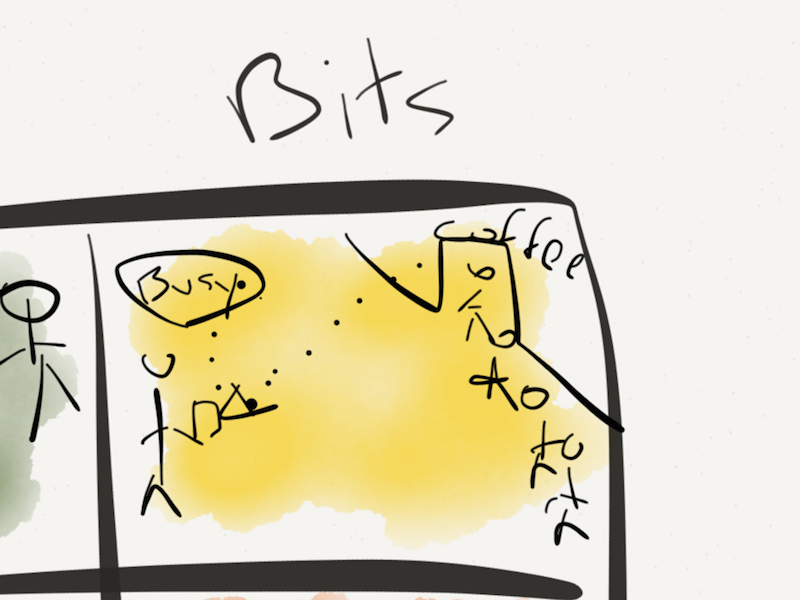 Bits
Busy
coffee